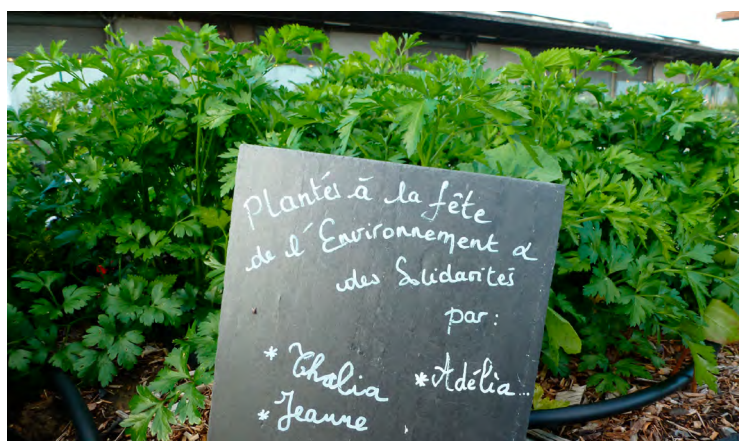 Plantés à la fête
de l'Environnement &
des Solidarités
par :
* Thalia * Adélia...
* Jeanne